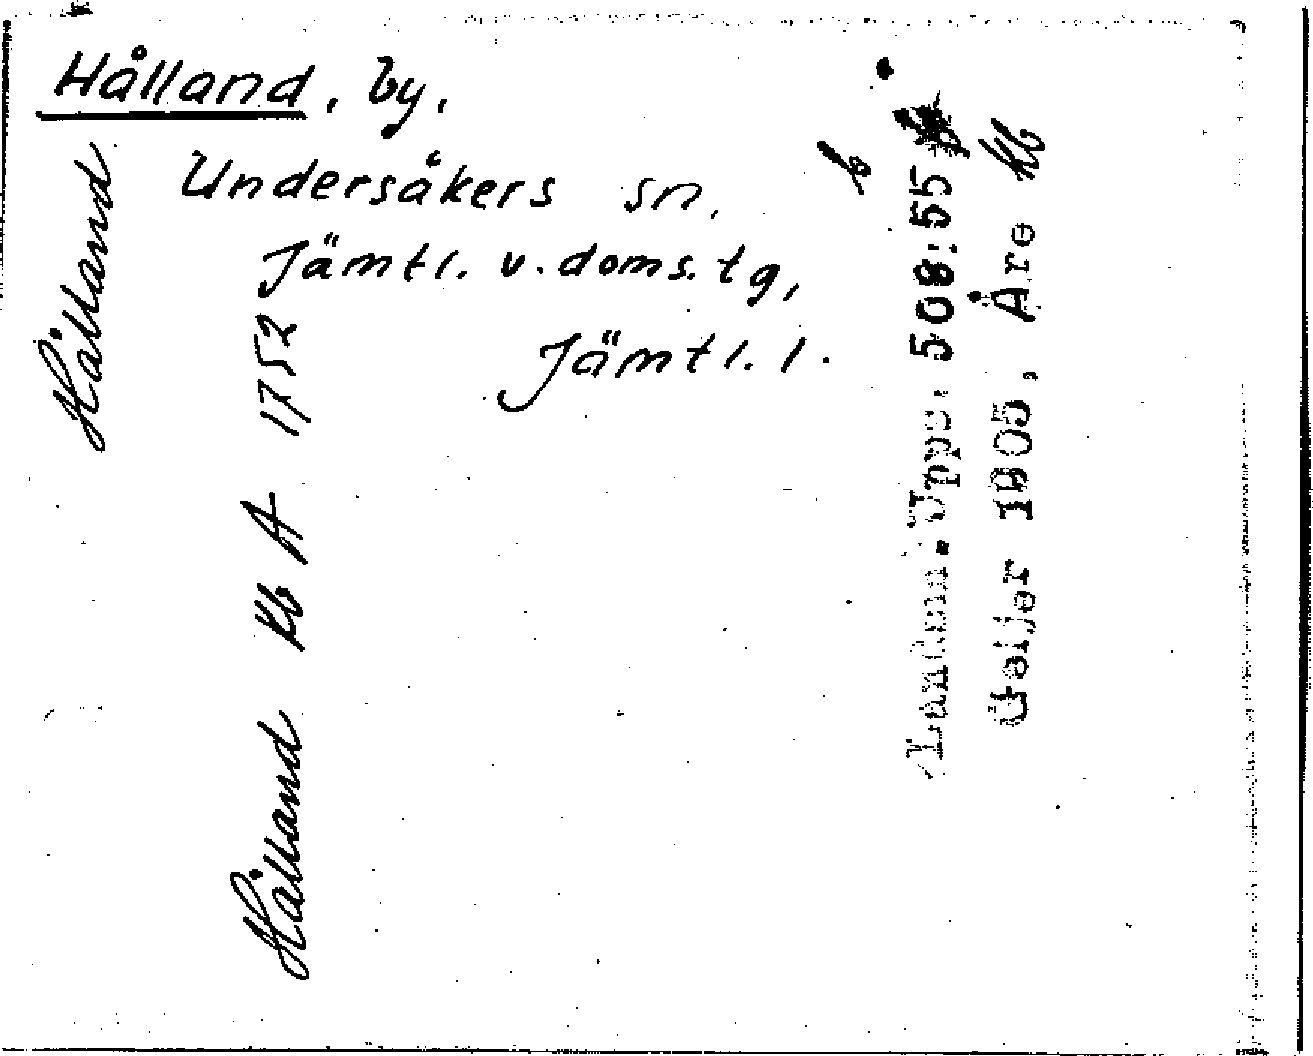 Hålland, by,
Undersåkers sn,
Jämtl. v. doms. tg,
Jämtl. l.
Hålland
Hålland Kb A 1752
b
Landsm. Upps. 508:55
Geijer 1805, Åre Kb